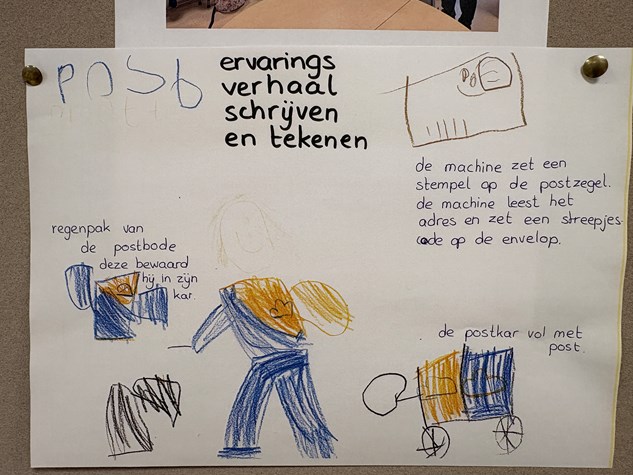 post
ervarings
verhaal
schrijven
en tekenen
de machine zet een
stempel op de postzegel.
de machine leest het
adres en zet een streepjes-
code op de envelop.
regenpak van
de postbode
deze bewaard
hij in zijn
kar
de postkar vol met
post.